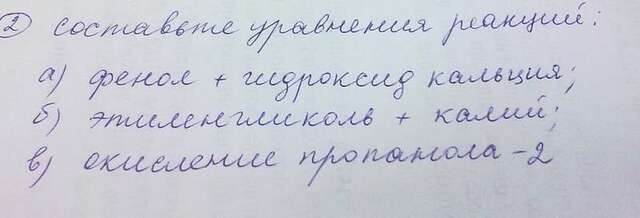 2 составьте уравнения реакций:
а) фенол + гидроксид кальция;
б) этиленгликоль + калий;
в) окисление пропанола-2